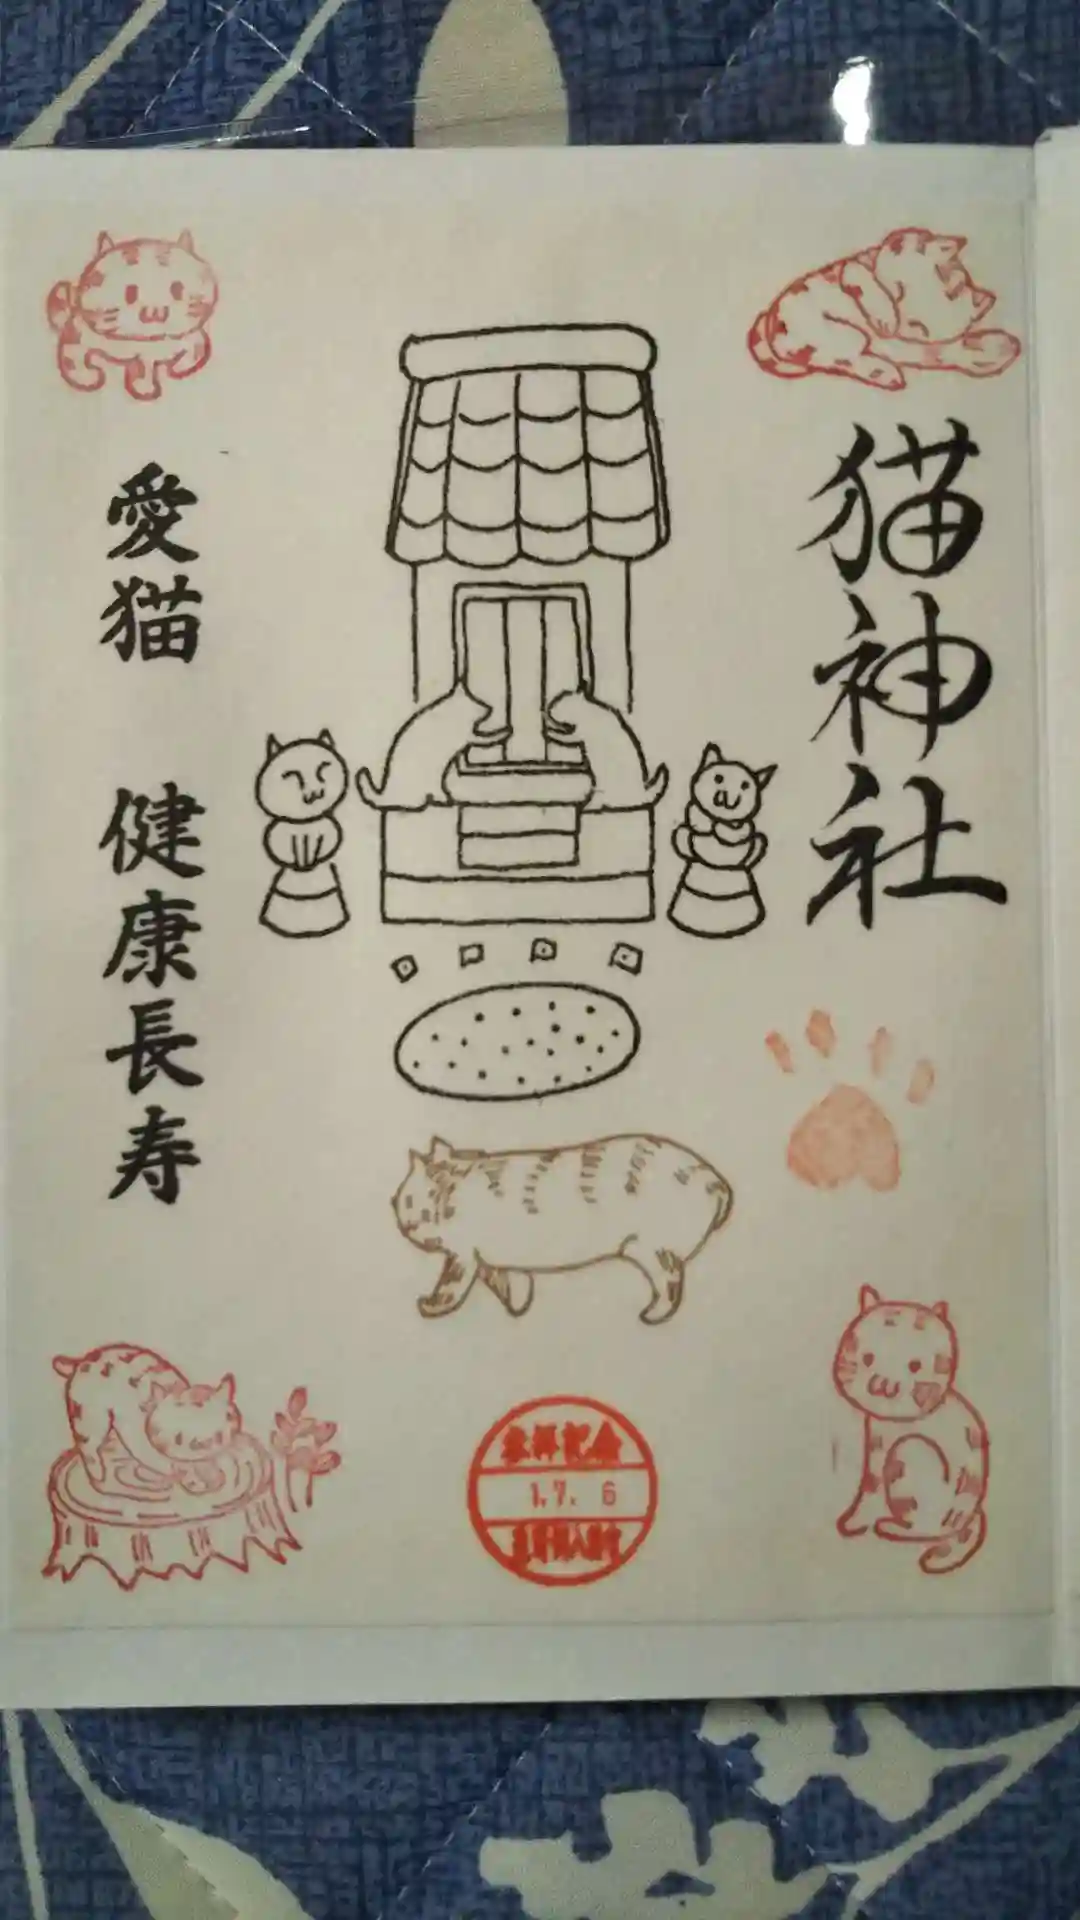 猫神社
愛猫 健康長寿
来拝記念
1.7.6